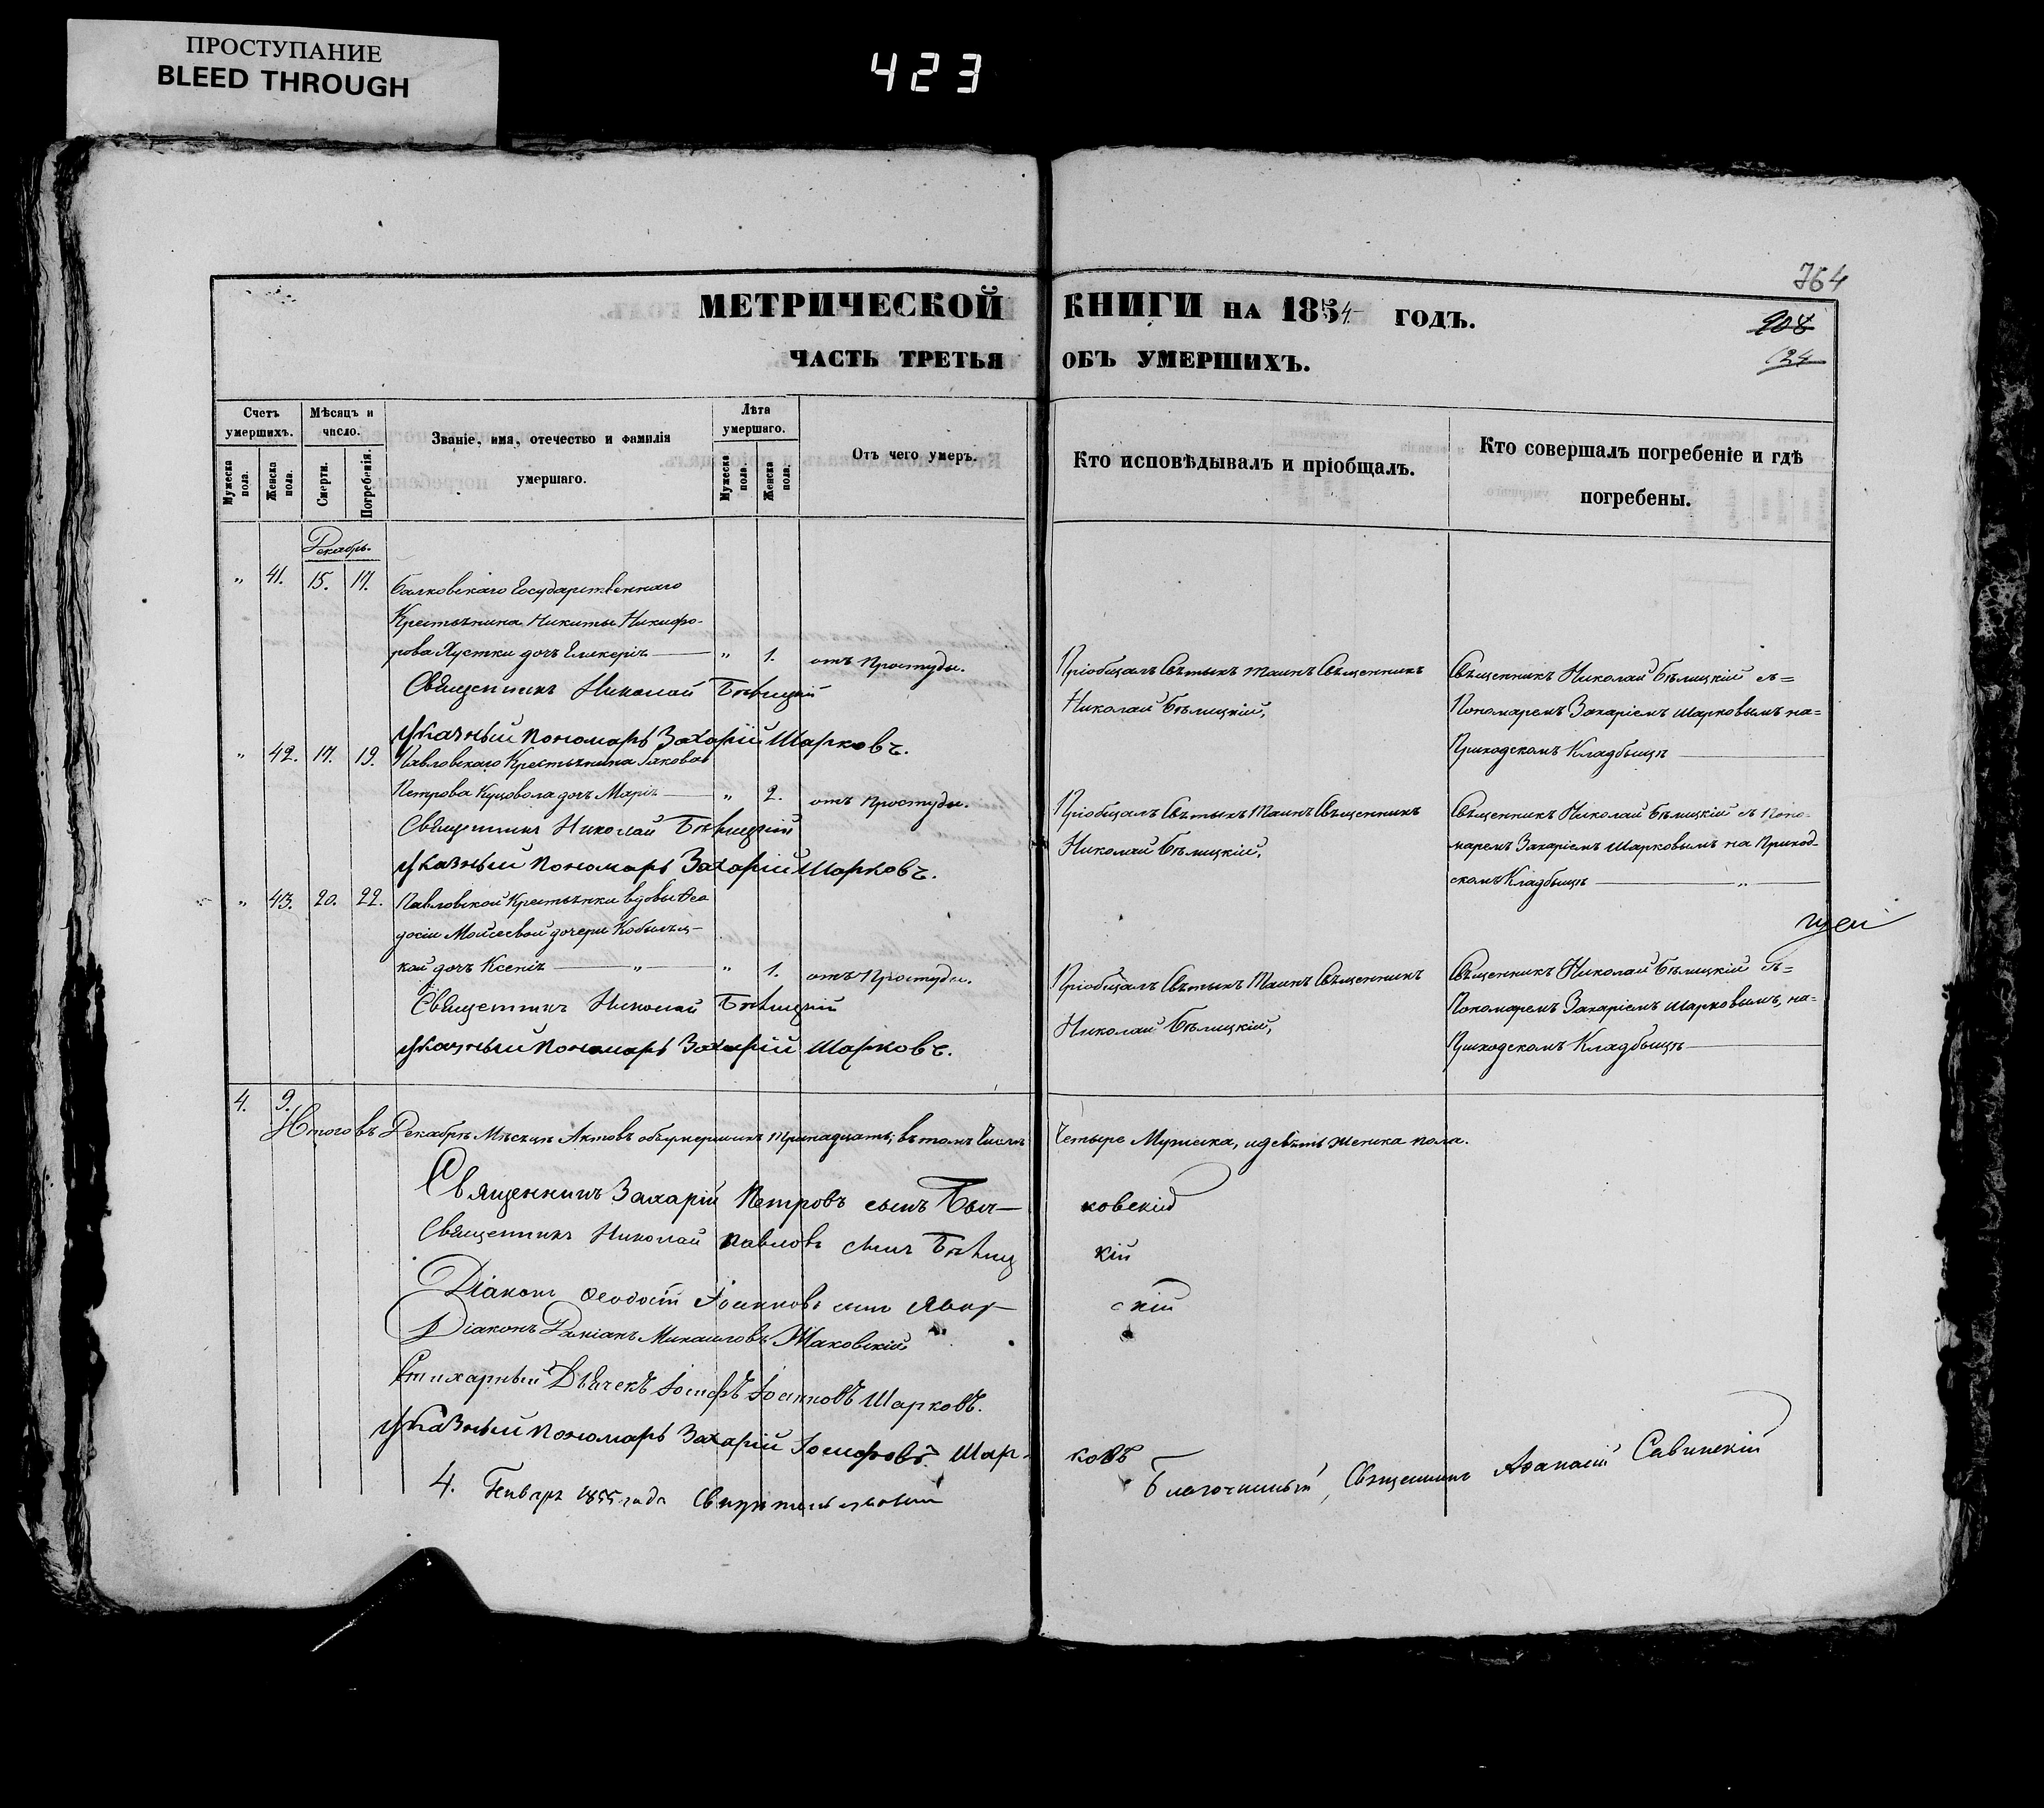 ПРОСТУПАНИЕ
BLEED THROUGH
423
764
908
124
МЕТРИЧЕСКОЙ КНИГИ НА 1854 ГОДЪ.
ЧАСТЬ ТРЕТЬЯ ОБЪ УМЕРШИХЪ.
Счетъ умершихъ.
Мужеска пола.
Женска пола.
Мѣсяцъ и число.
Смерти.
Погребенія.
Званіе, имя, отечество и фамилія умершаго.
Лѣта умершаго.
Мужеска пола.
Женска пола.
Отъ чего умеръ.
Кто исповѣдывалъ и пріобщалъ.
Кто совершалъ погребеніе и гдѣ погребены.
Декабрь.
" 41. 15. 17. Балковскаго Государственнаго
Крестьянина Никиты Никифо-
рова Хустки дочь Гликерія " 1. отъ простуды.
Пріобщалъ Святыхъ таинъ Священникъ
Николай Бѣлицкій,
Священникъ Николай Бѣлицкій съ=
Пономаремъ Захаріемъ Шарковымъ на=
Приходскомъ Кладбищѣ
Священникъ Николай Бѣлицкій
Указный пономарь Захарій Шарковъ.
" 42. 17. 19. Павловскаго Крестьянина Іакова
Петрова Куцовола дочь Марія " 2. отъ простуды.
Пріобщалъ Святыхъ Таинъ Священникъ
Николай Бѣлицкій,
Священникъ Николай Бѣлицкій съ Поно-
маремъ Захаріемъ Шарковымъ на Приход-
скомъ Кладбищѣ "
Священникъ Николай Бѣлицкій
Указный пономарь Захарій Шарковъ.
" 43. 20. 22. Павловской Крестьянки вдовы Ѳео
досіи Моисеевой дочери Кобыляц-
кой дочь Ксенія " " 1. отъ Простуды.
Пріобщалъ Святыхъ Таинъ Священникъ
Николай Бѣлицкій,
Священникъ Николай Бѣлицкій съ=
Пономаремъ Захаріемъ Шарковымъ, на=
Приходскомъ Кладбищѣ
Священникъ Николай Бѣлицкій
Указный Пономарь Захарій Шарковъ.
4. 9.
Итого въ Декабрѣ Мѣсяцѣ Актовъ объ умершихъ тринадцать; въ томъ Числѣ Четыре Мужеска, и девять женска пола.
Священникъ Захарій Петровъ сынъ Быч- ковскій
Священникъ Николай Павловъ сынъ Бѣлиц кій
Діаконъ Ѳеодосій Іоанновъ сынъ Явор- скій
Діаконъ Даміанъ Михаиловъ Маковскій
Стихарный Дьячекъ Іосифъ Іоанновъ Шарковъ.
Указный пономарь Захарій Іосифовъ Шар- ковъ
4. Января 1855 года Благочинный, Священникъ Аѳанасій Савинскій